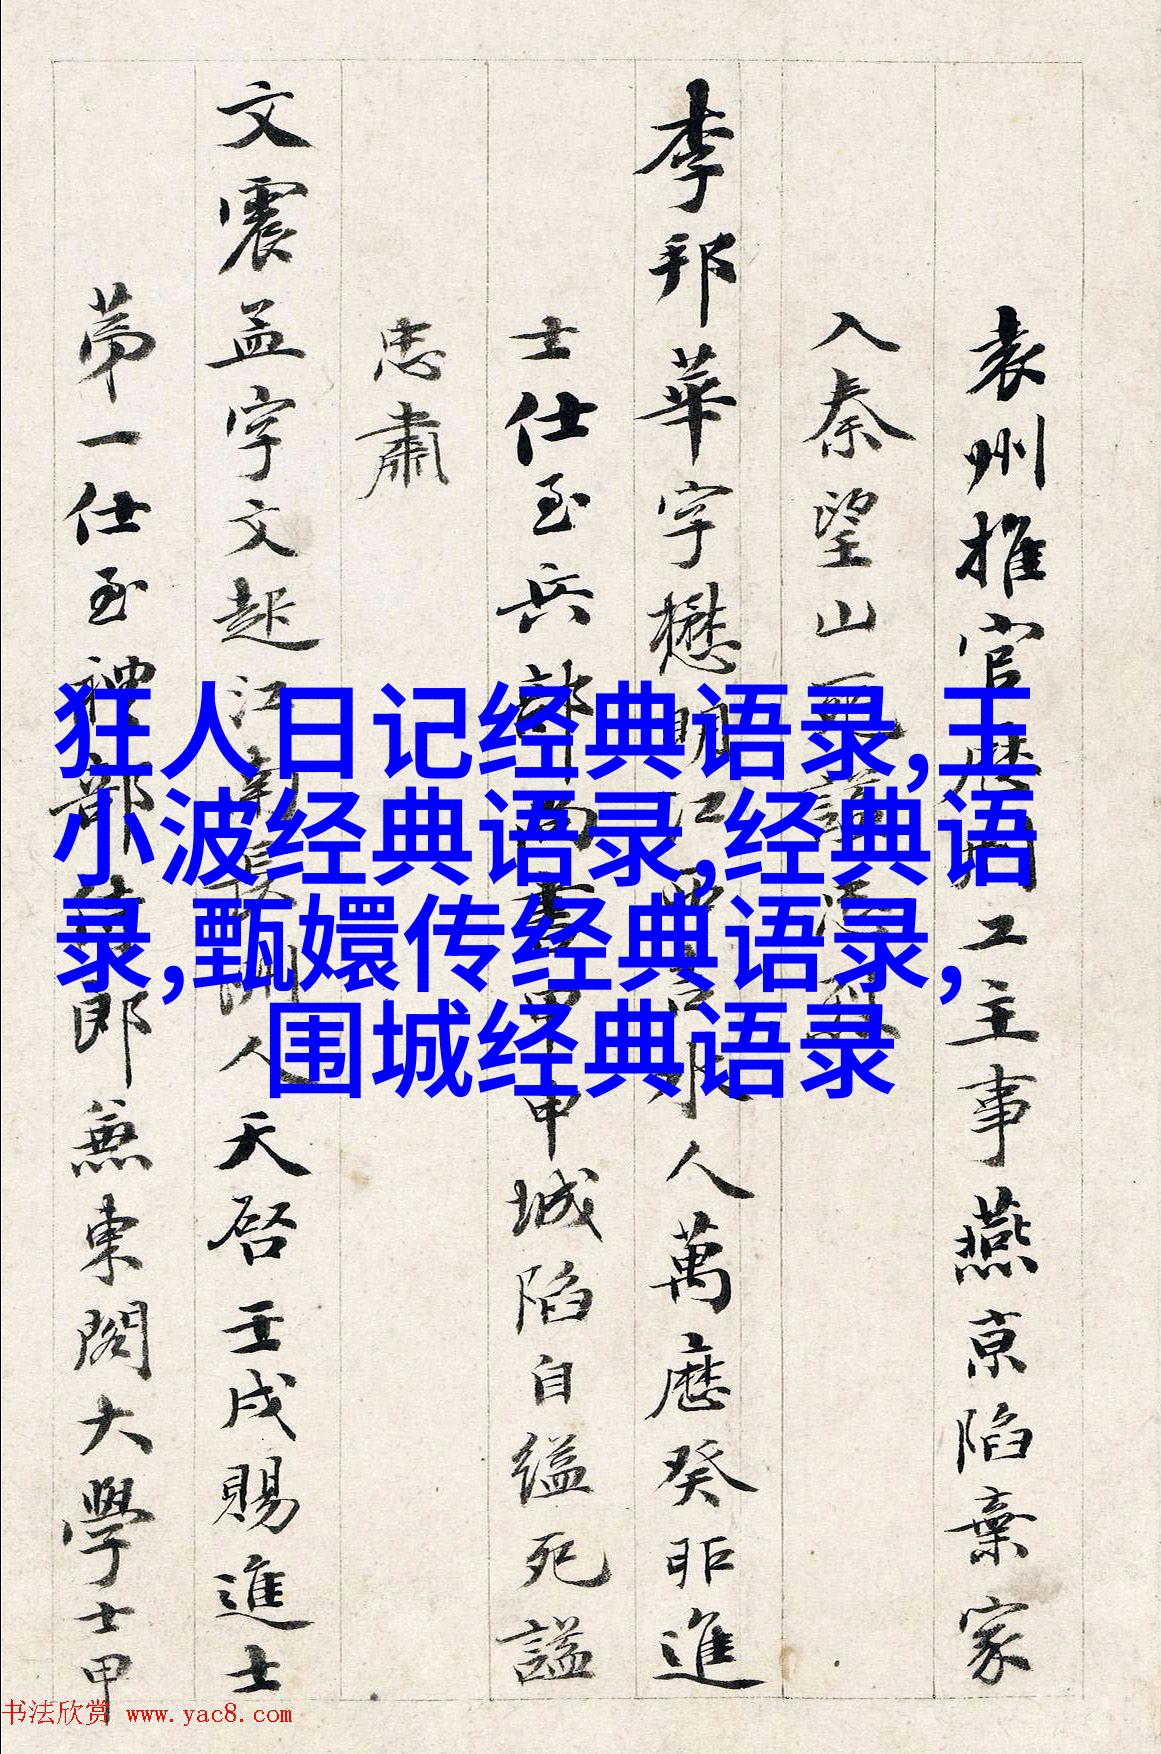 袁州推官歷工主事燕京陷棄家
入秦望山
李邦華字懋明江人萬歷癸卯進
士仕至兵部尚書甲申城陷自縊死諡
忠肅
文震孟字文起江南長洲人天啓壬戌賜進士
第一仕至禮部侍郎兼東閣大學士甲
狂人日记经典语录,王
小波经典语录,经典语
录,甄嬛传经典语录,
围城经典语录
书法欣赏 www.yac8.com